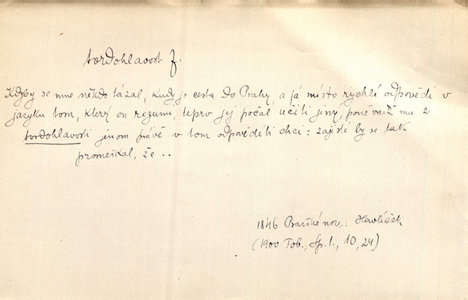 tvrdohlavost f.
Kdyby se mne někdo tázal, kudy je cesta do Prahy, a já místo rychlé odpovědi v
jazyku tom, který on rozumí, teprv jej počal učiti jiný, poněvadž mu z
tvrdohlavosti jenom právě v tom odpověděti chci: zajisté by se tak
promeškal, že ..
1846 Pražské nov.: Havlíček
(1900 Tob., Sp. 1, 10, 24)